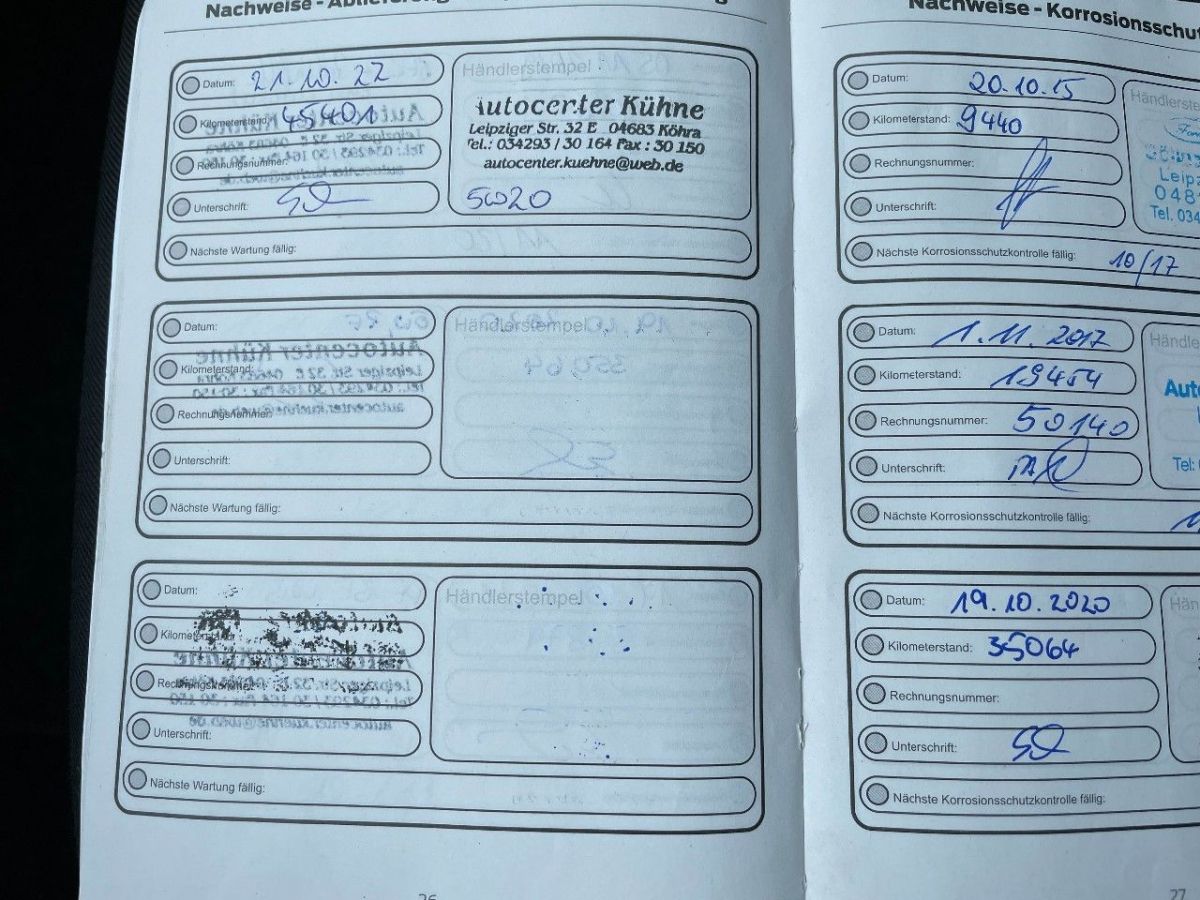 Nachweise -
Datum: 21.10.22
Kilometerstand: 45401
Rechnungsnummer:
Unterschrift:
Nächste Wartung fällig:
Händlerstempel
Autocenter Kühne
Leipziger Str. 32 E 04683 Köhra
Tel.: 034293 / 30 164 Fax : 30 150
autocenter.kuehne@web.de
5W20
Datum:
Kilometerstand:
Rechnungsnummer:
Unterschrift:
Nächste Wartung fällig:
Händlerstempel
Datum:
Rechnungsnummer:
Unterschrift:
Nächste Wartung fällig:
Händlerstempel
26
Nachweise - Korrosionsschut
Datum: 20.10.15
Kilometerstand: 9440
Rechnungsnummer:
Unterschrift:
Nächste Korrosionsschutzkontrolle fällig: 10/17
Händlerste
Leipz
048
Tel. 034
Datum: 1.11.2017
Kilometerstand: 19454
Rechnungsnummer: 50140
Unterschrift:
Nächste Korrosionsschutzkontrolle fällig:
Händle
Auto
Tel:
Datum: 19.10.2020
Kilometerstand: 35064
Rechnungsnummer:
Unterschrift:
Nächste Korrosionsschutzkontrolle fällig:
Hän
27